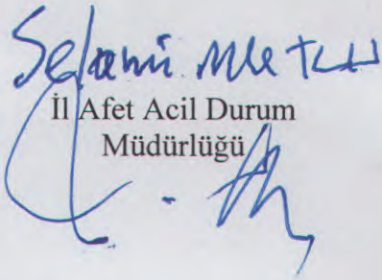 Selami
İl Afet Acil Durum
Müdürlüğü